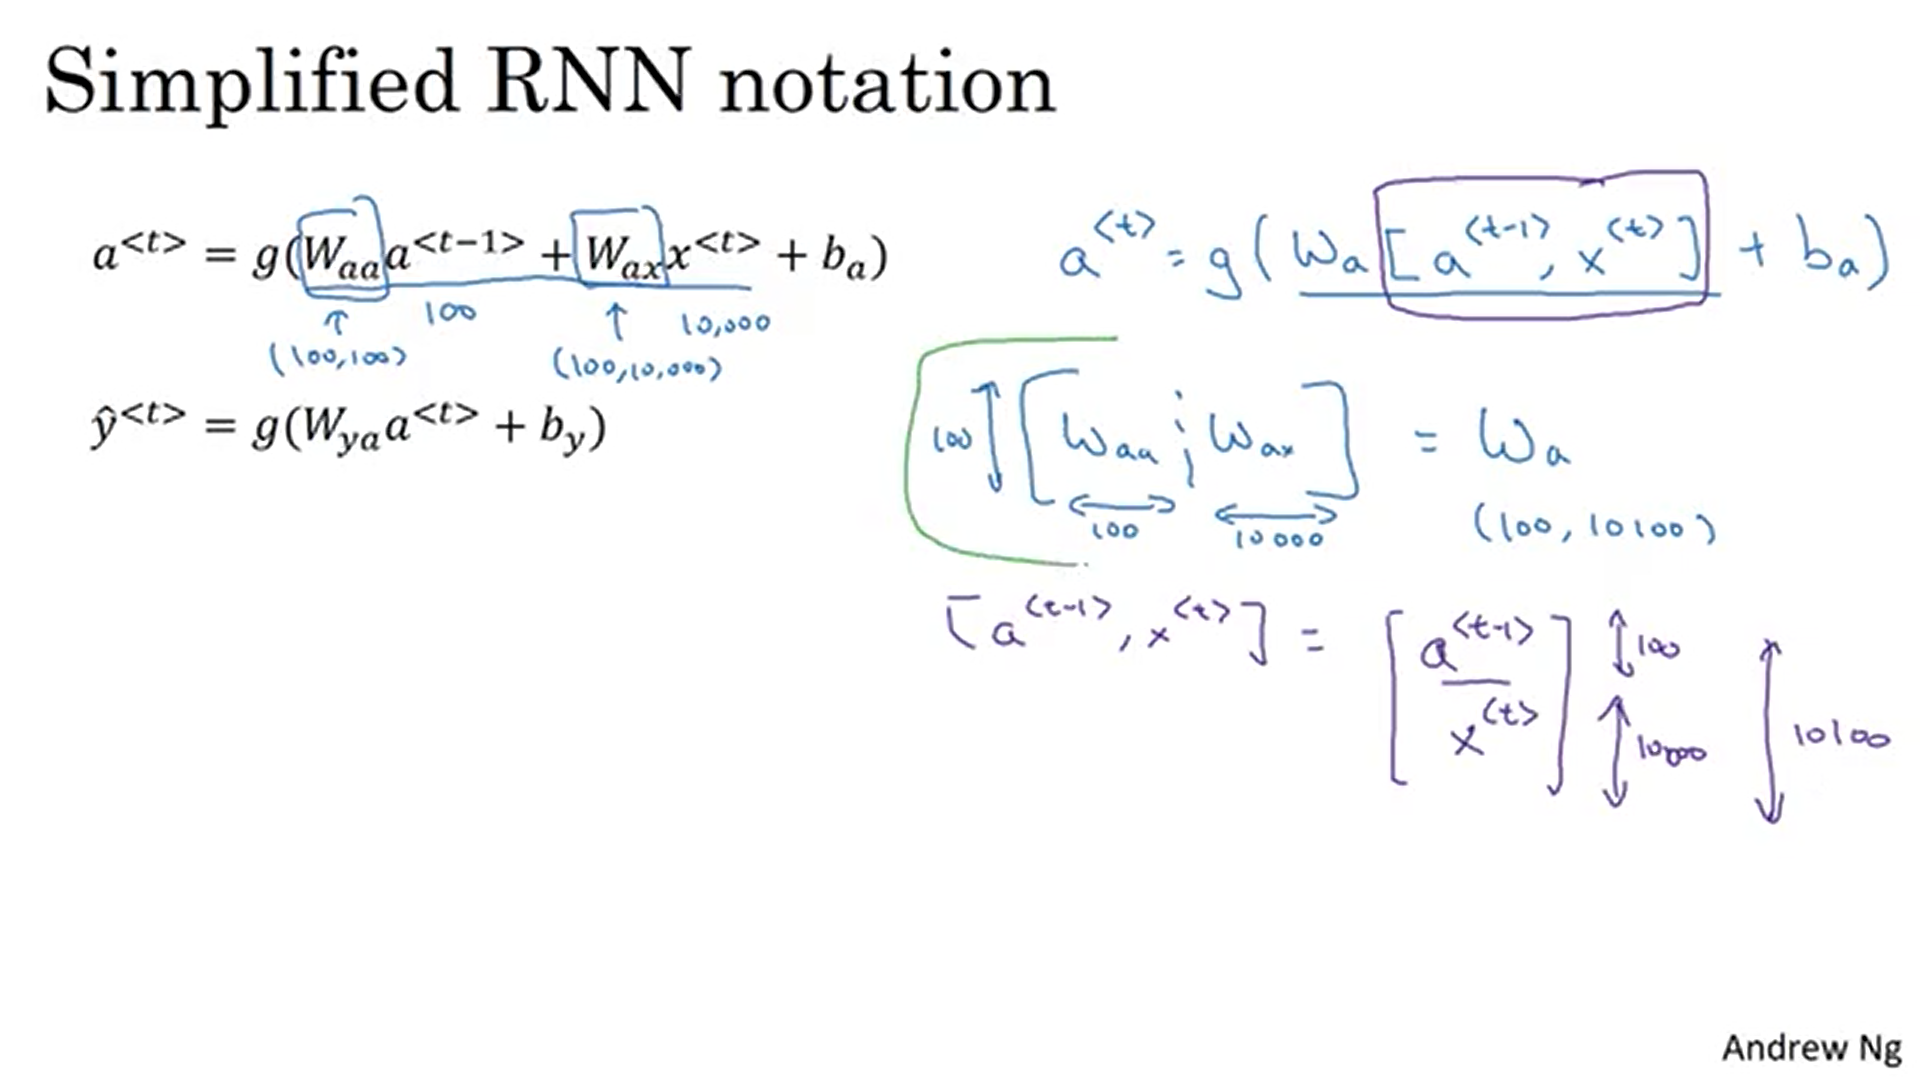 Simplified RNN notation
a<t> = g(Waa a<t−1> + Wax x<t> + ba)
100
10,000
(100,100)
(100,10,000)
ŷ<t> = g(Wya a<t> + by)
a<t> = g(Wa[a<t-1>, x<t>] + ba)
100 [Waa ; Wax] = Wa
100
10000
(100, 10100)
[a<t-1>, x<t>] = [a<t-1> 100
x<t>] 10000
10100
Andrew Ng